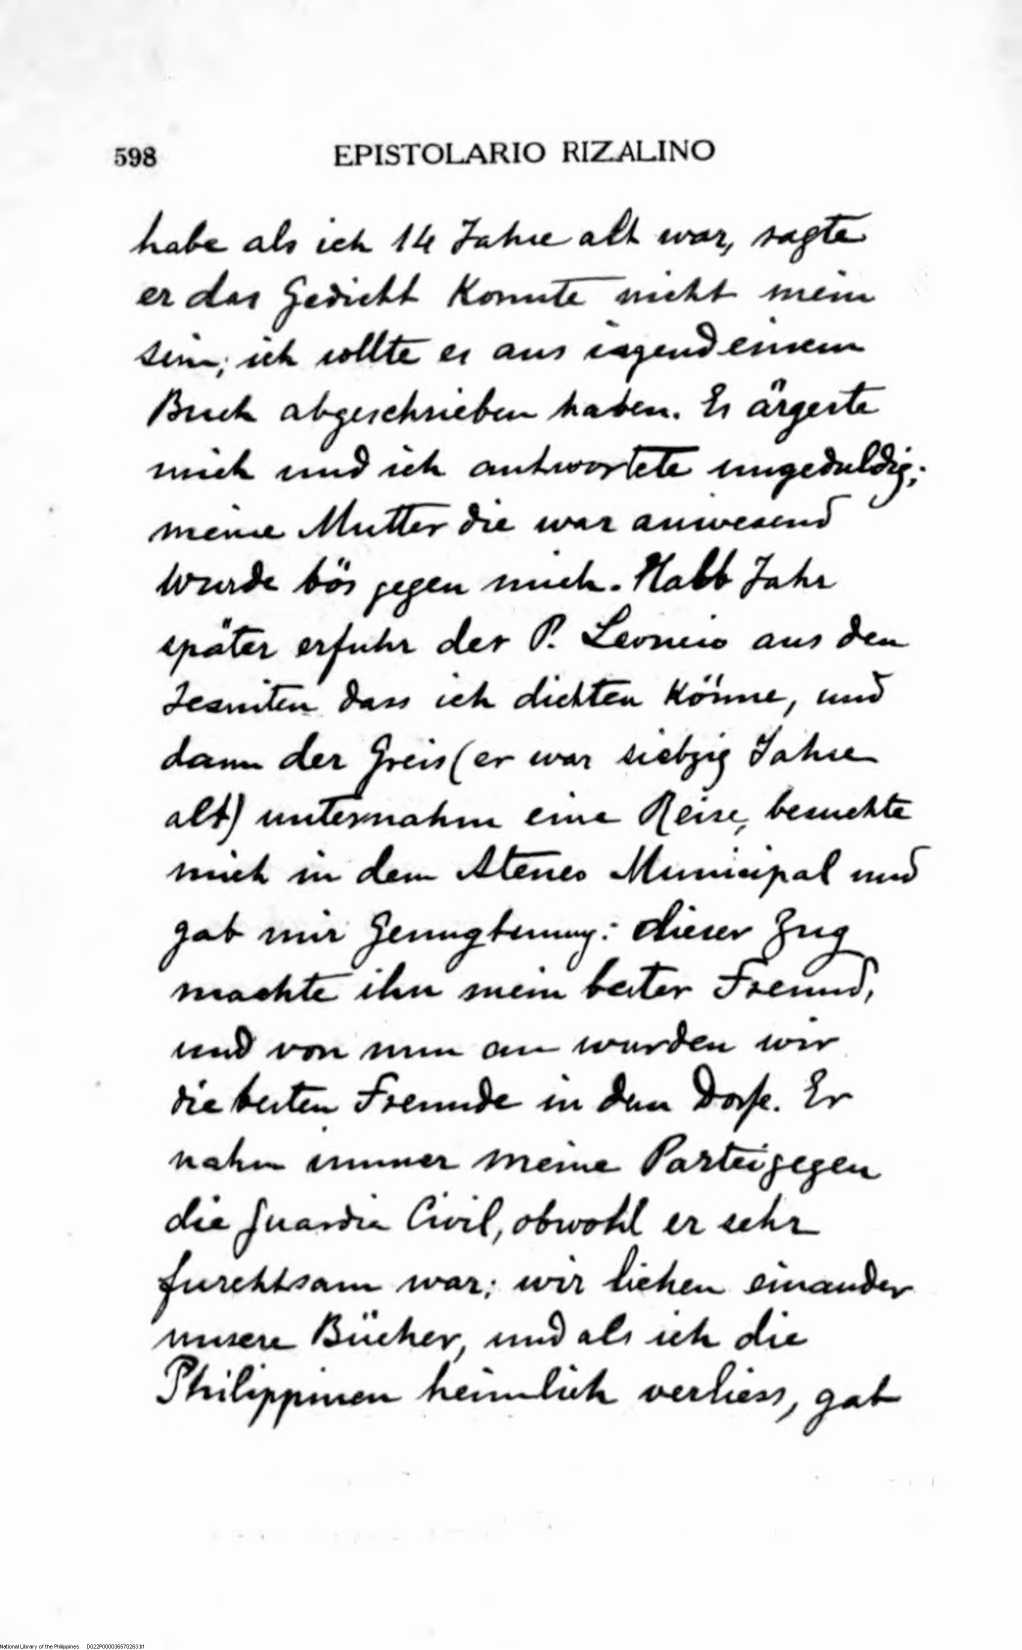 598 EPISTOLARIO RIZALINO
habe als ich 14 Jahre alt war, sagte
er das Gedicht konnte nicht mein
sein; ich sollte es aus irgend einem
Buch abgeschrieben haben. Es ärgerte
mich und ich antwortete ungeduldig;
meine Mutter die war anwesend
wurde bös gegen mich. Halb Jahr
später erfuhr der P. Leoncio aus den
Jesuiten dass ich dichten könne, und
dann der Greis (er war siebzig Jahre
alt) unternahm eine Reise, besuchte
mich in dem Ateneo Municipal und
gab mir Genugtuung: dieser Zug
machte ihn mein bester Freund,
und von nun an wurden wir
die besten Freunde in dem Dorfe. Er
nahm immer meine Partei gegen
die Guardia Civil, obwohl er sehr
furchtsam war; wir liehen einander
unsere Bücher, und als ich die
Philippinen heimlich verliess, gab
National Library of the Philippines